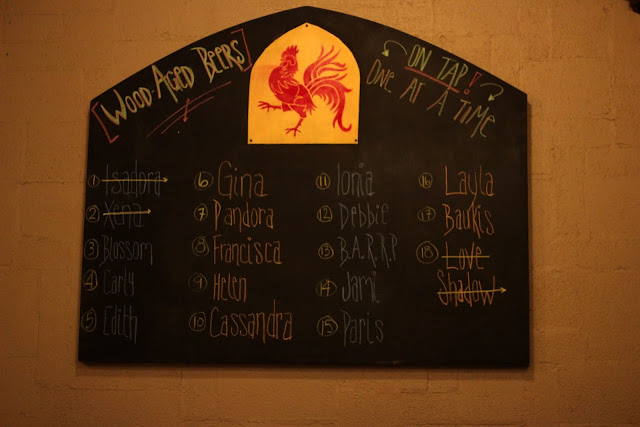 [WOOD-AGED BEERS]
ON TAP!
ONE AT A TIME
1 Isadora
2 Xena
3 Blossom
4 Carly
5 Edith
6 Gina
7 Pandora
8 Francisca
9 Helen
10 Cassandra
11 Ionia
12 Debbie
13 B.A.R.R.P
14 Jami
15 Paris
16 Layla
17 Baukis
18 Love
Shadow